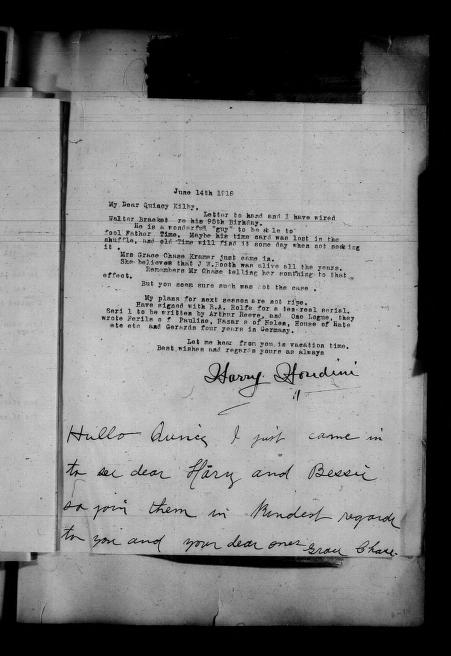 June 14th 1918
My Dear Quincy Kilby,
Letter to hand and I have wired
Walter Bracket re his 95th Birhday.
He is a wonderful "guy" to be able to
fool Father Time. Maybe his time card was lost in the
shuffle, and old Time will find it some day when not seeking
it.
Mrs Grace Chase Kramer just came in.
She believes that J W.Booth was alive all the years.
Remembers Mr Chase telling her somthing to that
effect.
But you seem sure such was not the case.
My plans for next season are not ripe.
Have signed with B.A. Rolfe for a ten-reel serial.
Seri l to be written by Arthur Reeve, and Chas Logue, they
wrote Perils of Pauline, Hazar s of Helen, House of Hate
etc etc and Gerards four years in Germany.
Let me hear from you in vacation time.
Best wishes and regards yours as always
Harry Houdini
Hullo Quincy I just came in
to see dear Harry and Bessie
so join them in kindest regards
to you and your dear ones Grace Chase.